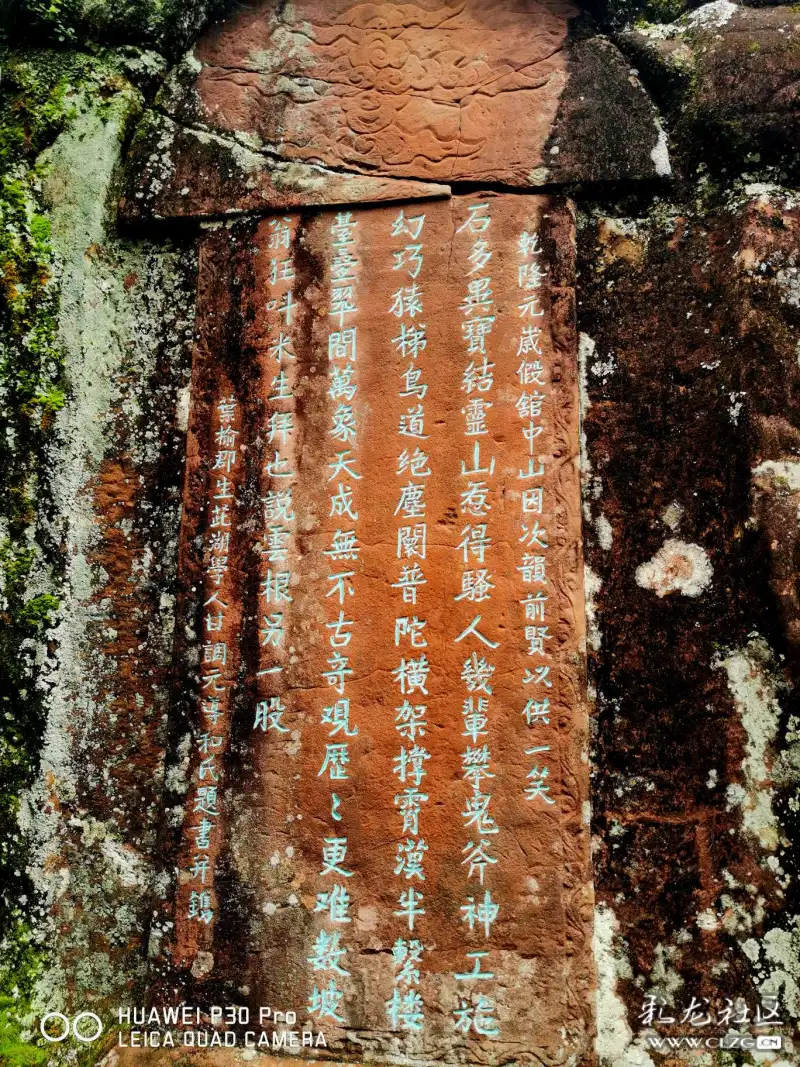 乾隆元嵗假舘中山因次韻前賢以供一笑
石多異寶結靈山惹得騷人幾輩攀鬼斧神工施
幻巧猿梯鳥道绝塵闤普陀橫架撑霄漢半繫楼
臺臺翠間萬象天成無不古奇观歷〻更难数坡
翁狂叫米生拜也説雲根另一股
葉榆郡生芷湖學人甘調元淳和氏題書并鐫
HUAWEI P30 Pro
LEICA QUAD CAMERA
札龙社区
WWW.CLZG.CN